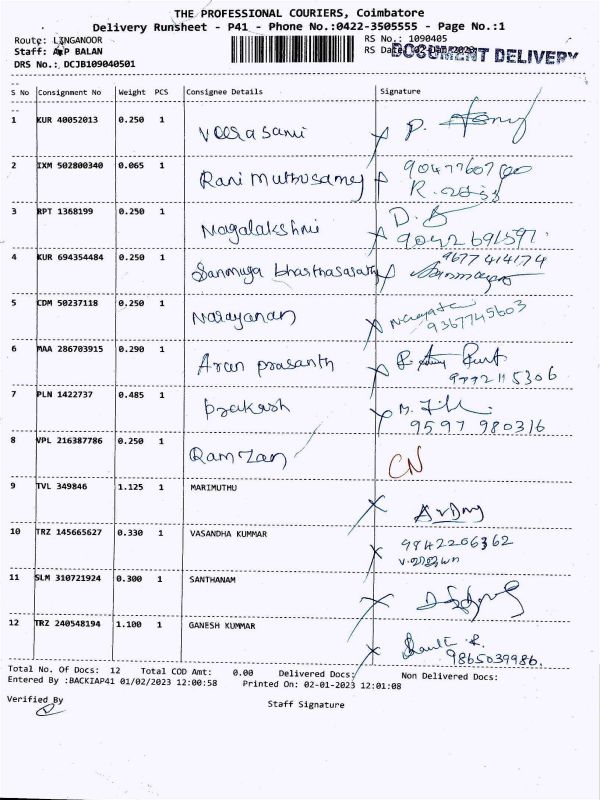 THE PROFESSIONAL COURIERS, Coimbatore
Delivery Runsheet - P41 - Phone No.:0422-3505555 - Page No.:1
Route: LINGANOOR RS No.: 1090405
Staff: P BALAN RS Date DOCUMENT DELIVERY
DRS No.: DCJB109040501
S No Consignment No Weight PCS Consignee Details Signature
1 KUR 40052013 0.250 1 Veerasami P.
2 IXM 502800340 0.065 1 Rani Muthusamy
R.
3 RPT 1368199 0.250 1 Nagalakshmi D.
9042691597
4 KUR 694354484 0.250 1 Sanmuga bharthasarathy 9677414174
5 CDM 50237118 0.250 1 Narayanan
9367745603
6 MAA 286703915 0.290 1 Arun prasanth
7 PLN 1422737 0.485 1 Prakash
9597 980316
8 VPL 216387786 0.250 1 Ramzan CN
9 TVL 349846 1.125 1 MARIMUTHU
10 TRZ 145665627 0.330 1 VASANDHA KUMMAR 9842206362
11 SLM 310721924 0.300 1 SANTHANAM
12 TRZ 240548194 1.100 1 GANESH KUMMAR
9865039986.
Total No. Of Docs: 12 Total COD Amt: 0.00 Delivered Docs: Non Delivered Docs:
Entered By :BACKIAP41 01/02/2023 12:00:58 Printed On: 02-01-2023 12:01:08
Verified By Staff Signature